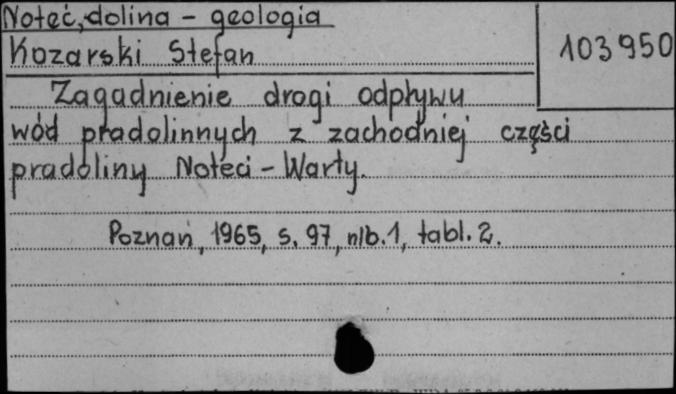 Noteć, dolina - geologia
Kozarski Stefan
103950
Zagadnienie drogi odpływu
wód pradolinnych z zachodniej części
pradoliny Noteci - Warty.
Poznań, 1965, s. 97, nlb. 1, tabl. 2.